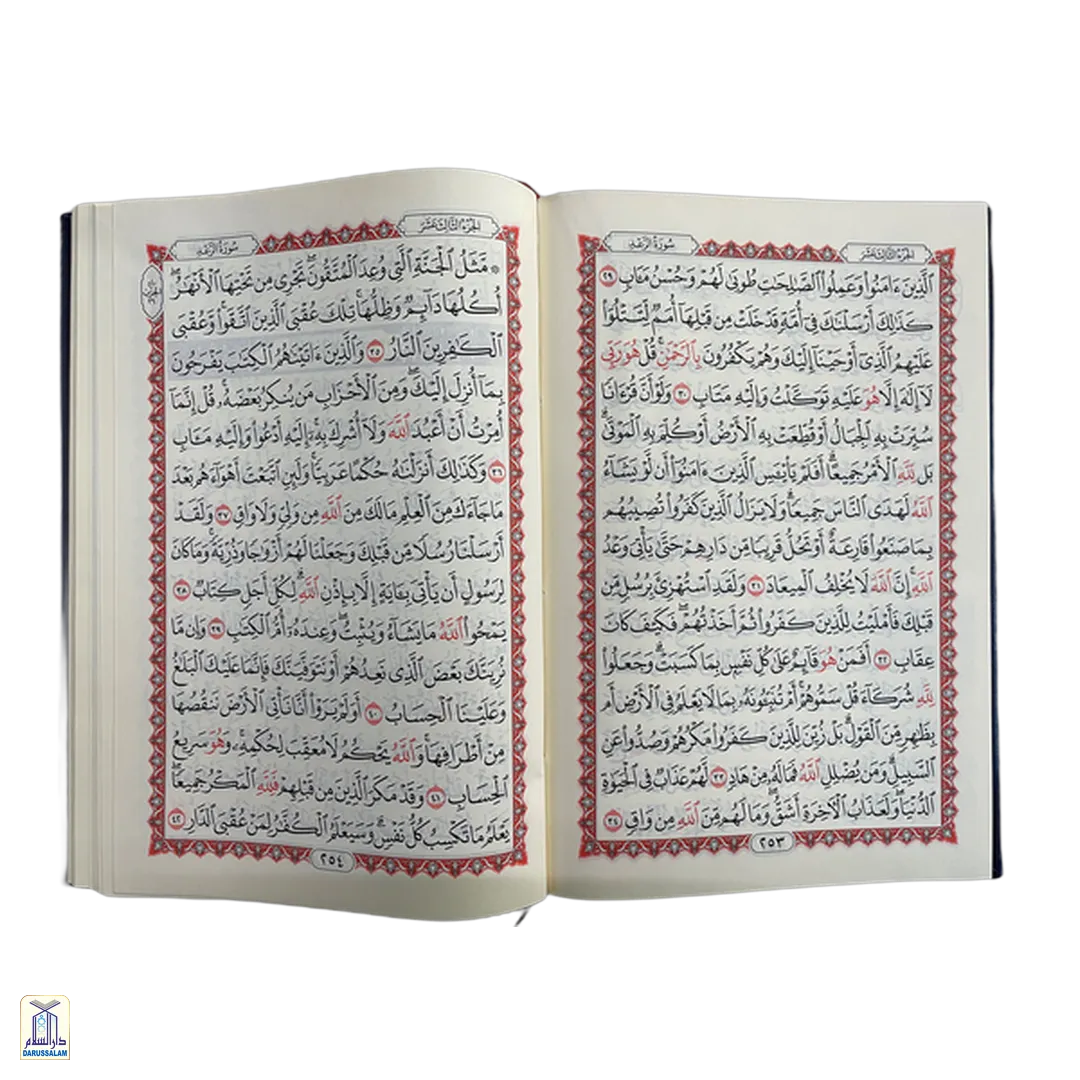 الجزء الثالث عشر
سورة الرعد
الَّذِينَ ءَامَنُوا۟ وَعَمِلُوا۟ الصَّـٰلِحَـٰتِ طُوبَىٰ لَهُمْ وَحُسْنُ مَـَٔابٍ ٢٩
كَذَٰلِكَ أَرْسَلْنَـٰكَ فِىٓ أُمَّةٍ قَدْ خَلَتْ مِن قَبْلِهَآ أُمَمٌ لِّتَتْلُوَا۟
عَلَيْهِمُ ٱلَّذِىٓ أَوْحَيْنَآ إِلَيْكَ وَهُمْ يَكْفُرُونَ بِٱلرَّحْمَـٰنِ ۚ قُلْ هُوَ رَبِّى
لَآ إِلَـٰهَ إِلَّا هُوَ عَلَيْهِ تَوَكَّلْتُ وَإِلَيْهِ مَتَابِ ٣٠ وَلَوْ أَنَّ قُرْءَانًا
سُيِّرَتْ بِهِ ٱلْجِبَالُ أَوْ قُطِّعَتْ بِهِ ٱلْأَرْضُ أَوْ كُلِّمَ بِهِ ٱلْمَوْتَىٰ ۗ
بَل لِّلَّهِ ٱلْأَمْرُ جَمِيعًا ۗ أَفَلَمْ يَا۟يْـَٔسِ ٱلَّذِينَ ءَامَنُوٓا۟ أَن لَّوْ يَشَآءُ
ٱللَّهُ لَهَدَى ٱلنَّاسَ جَمِيعًا ۗ وَلَا يَزَالُ ٱلَّذِينَ كَفَرُوا۟ تُصِيبُهُم
بِمَا صَنَعُوا۟ قَارِعَةٌ أَوْ تَحُلُّ قَرِيبًا مِّن دَارِهِمْ حَتَّىٰ يَأْتِىَ وَعْدُ
ٱللَّهِ ۚ إِنَّ ٱللَّهَ لَا يُخْلِفُ ٱلْمِيعَادَ ٣١ وَلَقَدِ ٱسْتُهْزِئَ بِرُسُلٍ مِّن
قَبْلِكَ فَأَمْلَيْتُ لِلَّذِينَ كَفَرُوا۟ ثُمَّ أَخَذْتُهُمْ ۖ فَكَيْفَ كَانَ
عِقَابِ ٣٢ أَفَمَنْ هُوَ قَآئِمٌ عَلَىٰ كُلِّ نَفْسٍۭ بِمَا كَسَبَتْ ۗ وَجَعَلُوا۟
لِلَّهِ شُرَكَآءَ قُلْ سَمُّوهُمْ ۚ أَمْ تُنَبِّـُٔونَهُۥ بِمَا لَا يَعْلَمُ فِى ٱلْأَرْضِ أَم
بِظَـٰهِرٍ مِّنَ ٱلْقَوْلِ ۗ بَلْ زُيِّنَ لِلَّذِينَ كَفَرُوا۟ مَكْرُهُمْ وَصُدُّوا۟ عَنِ
ٱلسَّبِيلِ ۗ وَمَن يُضْلِلِ ٱللَّهُ فَمَا لَهُۥ مِنْ هَادٍ ٣٣ لَّهُمْ عَذَابٌ فِى ٱلْحَيَوٰةِ
ٱلدُّنْيَا ۖ وَلَعَذَابُ ٱلْـَٔاخِرَةِ أَشَقُّ ۖ وَمَا لَهُم مِّنَ ٱللَّهِ مِن وَاقٍ ٣٤
٢٥٣
الجزء الثالث عشر
سورة الرعد
۞ مَّثَلُ ٱلْجَنَّةِ ٱلَّتِى وُعِدَ ٱلْمُتَّقُونَ ۖ تَجْرِى مِن تَحْتِهَا ٱلْأَنْهَـٰرُ ۖ
أُكُلُهَا دَآئِمٌ وَظِلُّهَا ۚ تِلْكَ عُقْبَى ٱلَّذِينَ ٱتَّقَوا۟ ۖ وَّعُقْبَى
ٱلْكَـٰفِرِينَ ٱلنَّارُ ٣٥ وَٱلَّذِينَ ءَاتَيْنَـٰهُمُ ٱلْكِتَـٰبَ يَفْرَحُونَ
بِمَآ أُنزِلَ إِلَيْكَ ۖ وَمِنَ ٱلْأَحْزَابِ مَن يُنكِرُ بَعْضَهُۥ ۚ قُلْ إِنَّمَآ
أُمِرْتُ أَنْ أَعْبُدَ ٱللَّهَ وَلَآ أُشْرِكَ بِهِۦٓ ۚ إِلَيْهِ أَدْعُوا۟ وَإِلَيْهِ مَـَٔابِ
٣٦ وَكَذَٰلِكَ أَنزَلْنَـٰهُ حُكْمًا عَرَبِيًّا ۚ وَلَئِنِ ٱتَّبَعْتَ أَهْوَآءَهُم بَعْدَ
مَا جَآءَكَ مِنَ ٱلْعِلْمِ مَا لَكَ مِنَ ٱللَّهِ مِن وَلِىٍّ وَلَا وَاقٍ ٣٧ وَلَقَدْ
أَرْسَلْنَا رُسُلًا مِّن قَبْلِكَ وَجَعَلْنَا لَهُمْ أَزْوَٰجًا وَذُرِّيَّةً ۚ وَمَا كَانَ
لِرَسُولٍ أَن يَأْتِىَ بِـَٔايَةٍ إِلَّا بِإِذْنِ ٱللَّهِ ۗ لِكُلِّ أَجَلٍ كِتَابٌ ٣٨
يَمْحُوا۟ ٱللَّهُ مَا يَشَآءُ وَيُثْبِتُ ۖ وَعِندَهُۥٓ أُمُّ ٱلْكِتَـٰبِ ٣٩ وَإِن مَّا
نُرِيَنَّكَ بَعْضَ ٱلَّذِى نَعِدُهُمْ أَوْ نَتَوَفَّيَنَّكَ فَإِنَّمَا عَلَيْكَ ٱلْبَلَـٰغُ
وَعَلَيْنَا ٱلْحِسَابُ ٤٠ أَوَلَمْ يَرَوْا۟ أَنَّا نَأْتِى ٱلْأَرْضَ نَنقُصُهَا
مِنْ أَطْرَافِهَا ۚ وَٱللَّهُ يَحْكُمُ لَا مُعَقِّبَ لِحُكْمِهِۦ ۚ وَهُوَ سَرِيعُ
ٱلْحِسَابِ ٤١ وَقَدْ مَكَرَ ٱلَّذِينَ مِن قَبْلِهِمْ فَلِلَّهِ ٱلْمَكْرُ جَمِيعًا ۖ
يَعْلَمُ مَا تَكْسِبُ كُلُّ نَفْسٍ ۗ وَسَيَعْلَمُ ٱلْكُفَّـٰرُ لِمَنْ عُقْبَى ٱلدَّارِ ٤٢
٢٥٤
دار السلام
DARUSSALAM